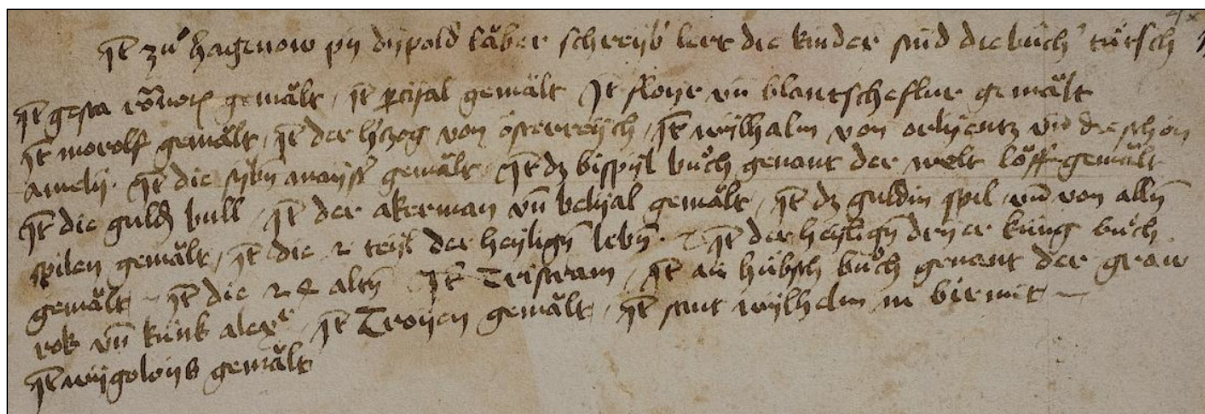 Jt zu° hagenow py dypold läber schreyb' lert die kinder sind die bu°ch' tu̍tsch
Jt gesta romnorꝫ gemält , Jt parcifal gemält Jt floyr vn̄ blantscheflur gemält
Jt morolf gemält , Jt der h'tzog von österreych , Jt wylhalm von orlyentz vn̄ die schön
amely . Jt die sybn̄ maystʼ gemält , Jt dz bispyl bu°ch genant der welt löff gemält
Jt die guldn̄ bull , Jt der akerman vn̄ belyal gemält , Jt dz guldin spil vn̄ von alln̄
spilen gemält , Jt die 2 teyl der heylign̄ lebn̄ . Jt der heylign̄ dryer küng bu°ch
gemält Jt die 24 altn̄ Jt Tristram , Jt ain hübsch bu°ch genant der graw
rok vn̄ künk alexʳ , Jt Troyen gemält , Jt sant wylhalm in birmit
Jt wygoloys gemält